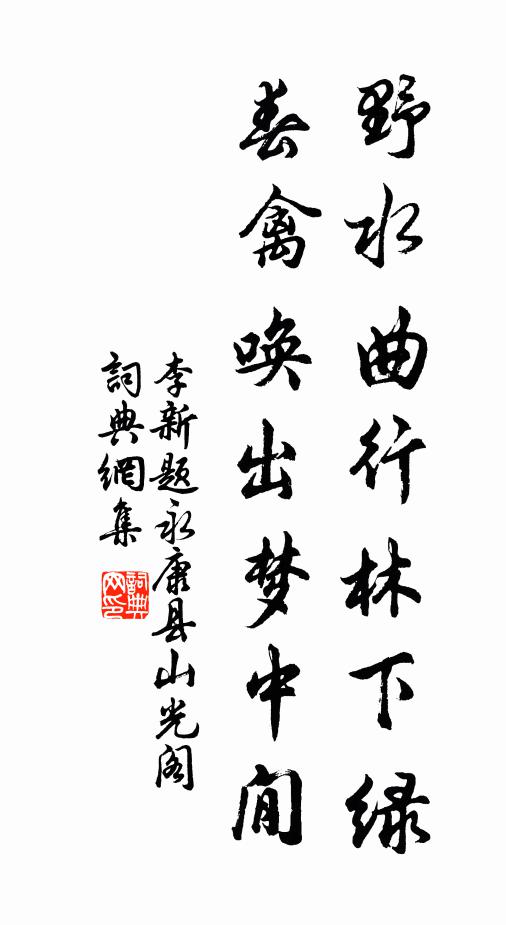 野水曲行林下绿
春禽唤出梦中闲
李新题永康县山光阁
詞典網集
詞典网印